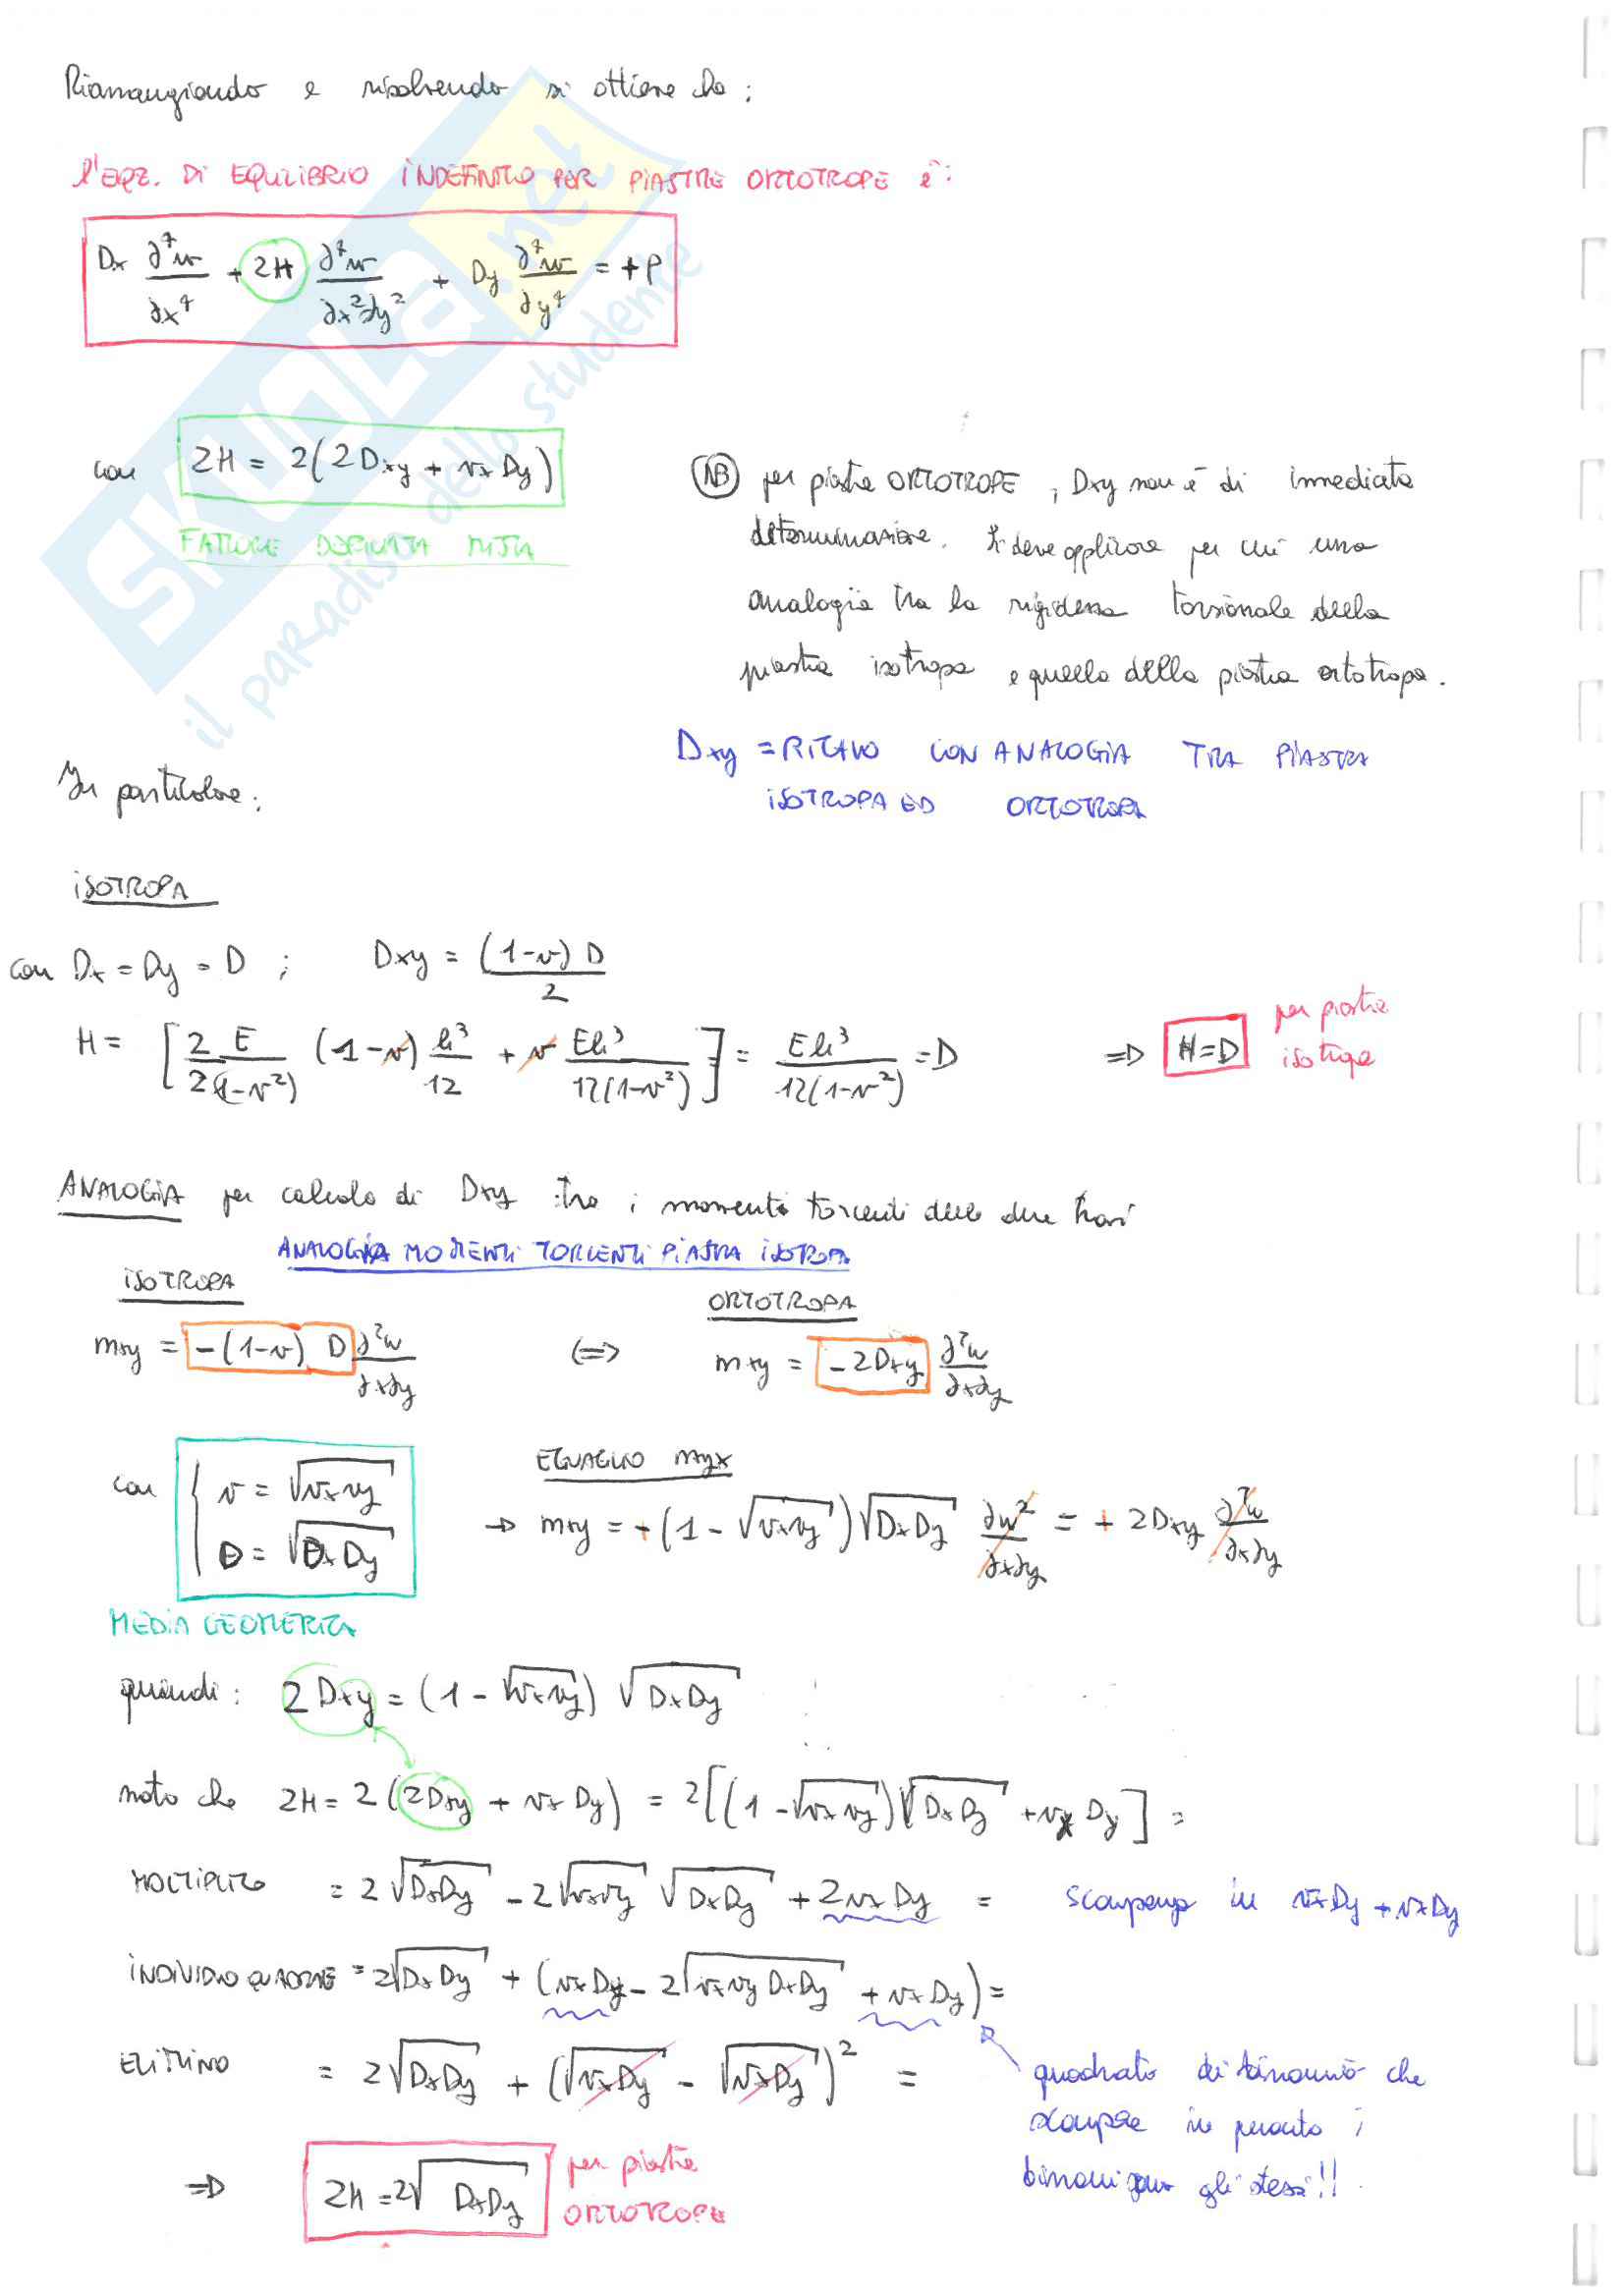 Rimaneggiando e risolvendo si ottiene che:
l'EQZ. DI EQUILIBRIO INDEFINITO PER PIASTRE ORTOTROPE è:
Dx ∂⁴w/∂x⁴ + 2H ∂⁴w/∂x²∂y² + Dy ∂⁴w/∂y⁴ = +p
con 2H = 2(2Dxy + νx Dy)
FATTORE DERIVATA MISTA
NB per piastre ORTOTROPE, Dxy non è di immediata
determinazione. Si deve applicare per cui una
analogia tra la rigidezza torsionale della
piastra isotropa e quella della piastra ortotropa.
Dxy = RICAVO CON ANALOGIA TRA PIASTRA
ISOTROPA ED ORTOTROPA
In particolare:
ISOTROPA
con Dx = Dy = D ; Dxy = (1-ν) D / 2
H = [2/2 E/(1-ν²) (1-ν) h³/12 + ν Eh³/12(1-ν²)] = Eh³/12(1-ν²) = D ⇒ H=D per piastre isotrope
ANALOGIA per calcolo di Dxy tra i momenti torcenti delle due travi
ANALOGIA MOMENTI TORCENTI PIASTRA ISOTROPA
ISOTROPA ORTOTROPA
mxy = -(1-ν) D ∂²w/∂x∂y ⇔ mxy = -2Dxy ∂²w/∂x∂y
con { ν = √νxνy
D = √DxDy
MEDIA GEOMETRICA
EGUAGLIO mxyx
→ mxy = +(1-√νxνy)√DxDy ∂w²/∂x∂y = + 2Dxy ∂²w/∂x∂y
quindi: 2Dxy = (1-√νxνy) √DxDy
noto che 2H = 2(2Dxy + νx Dy) = 2[(1-√νxνy)√DxDy + νx Dy] =
MOLTIPLICO = 2√DxDy - 2√νxνy √DxDy + 2νx Dy = scompongo in νxDy + νxDy
INDIVIDUO QUADRATO = 2√DxDy + (νxDy - 2√νxνyDxDy + νxDy) =
ELIMINO = 2√DxDy + (√νxDy - √νxDy)² =
quadrato di binomio che
scompare in quanto i
binomi sono gli stessi!!
⇒ 2H = 2√DxDy per piastre ORTOTROPE
SKUOLA.net
il paradiso dello studente